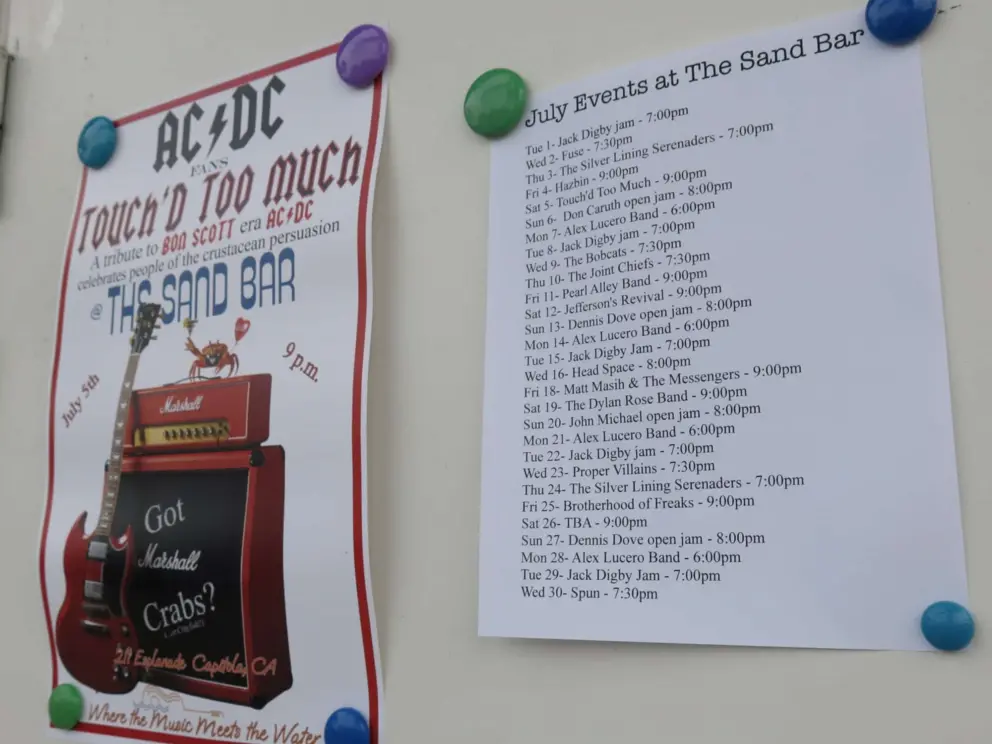 AC DC
FANS
TOUCH'D TOO MUCH
A tribute to BON SCOTT era AC DC
celebrates people of the crustacean persuasion
@ THE SAND BAR
July 5th
9 p.m.
Marshall
Got
Marshall
Crabs?
Esplanade Capitola, CA
Where the Music Meets the Water
July Events at The Sand Bar
Tue 1- Jack Digby jam - 7:00pm
Wed 2- Fuse - 7:30pm
Thu 3- The Silver Lining Serenaders - 7:00pm
Fri 4- Hazbin - 9:00pm
Sat 5- Touch'd Too Much - 9:00pm
Sun 6- Don Caruth open jam - 8:00pm
Mon 7- Alex Lucero Band - 6:00pm
Tue 8- Jack Digby jam - 7:00pm
Wed 9- The Bobcats - 7:30pm
Thu 10- The Joint Chiefs - 7:30pm
Fri 11- Pearl Alley Band - 9:00pm
Sat 12- Jefferson's Revival - 9:00pm
Sun 13- Dennis Dove open jam - 8:00pm
Mon 14- Alex Lucero Band - 6:00pm
Tue 15- Jack Digby Jam - 7:00pm
Wed 16- Head Space - 8:00pm
Fri 18- Matt Masih & The Messengers - 9:00pm
Sat 19- The Dylan Rose Band - 9:00pm
Sun 20- John Michael open jam - 8:00pm
Mon 21- Alex Lucero Band - 6:00pm
Tue 22- Jack Digby jam - 7:00pm
Wed 23- Proper Villains - 7:30pm
Thu 24- The Silver Lining Serenaders - 7:00pm
Fri 25- Brotherhood of Freaks - 9:00pm
Sat 26- TBA - 9:00pm
Sun 27- Dennis Dove open jam - 8:00pm
Mon 28- Alex Lucero Band - 6:00pm
Tue 29- Jack Digby Jam - 7:00pm
Wed 30- Spun - 7:30pm